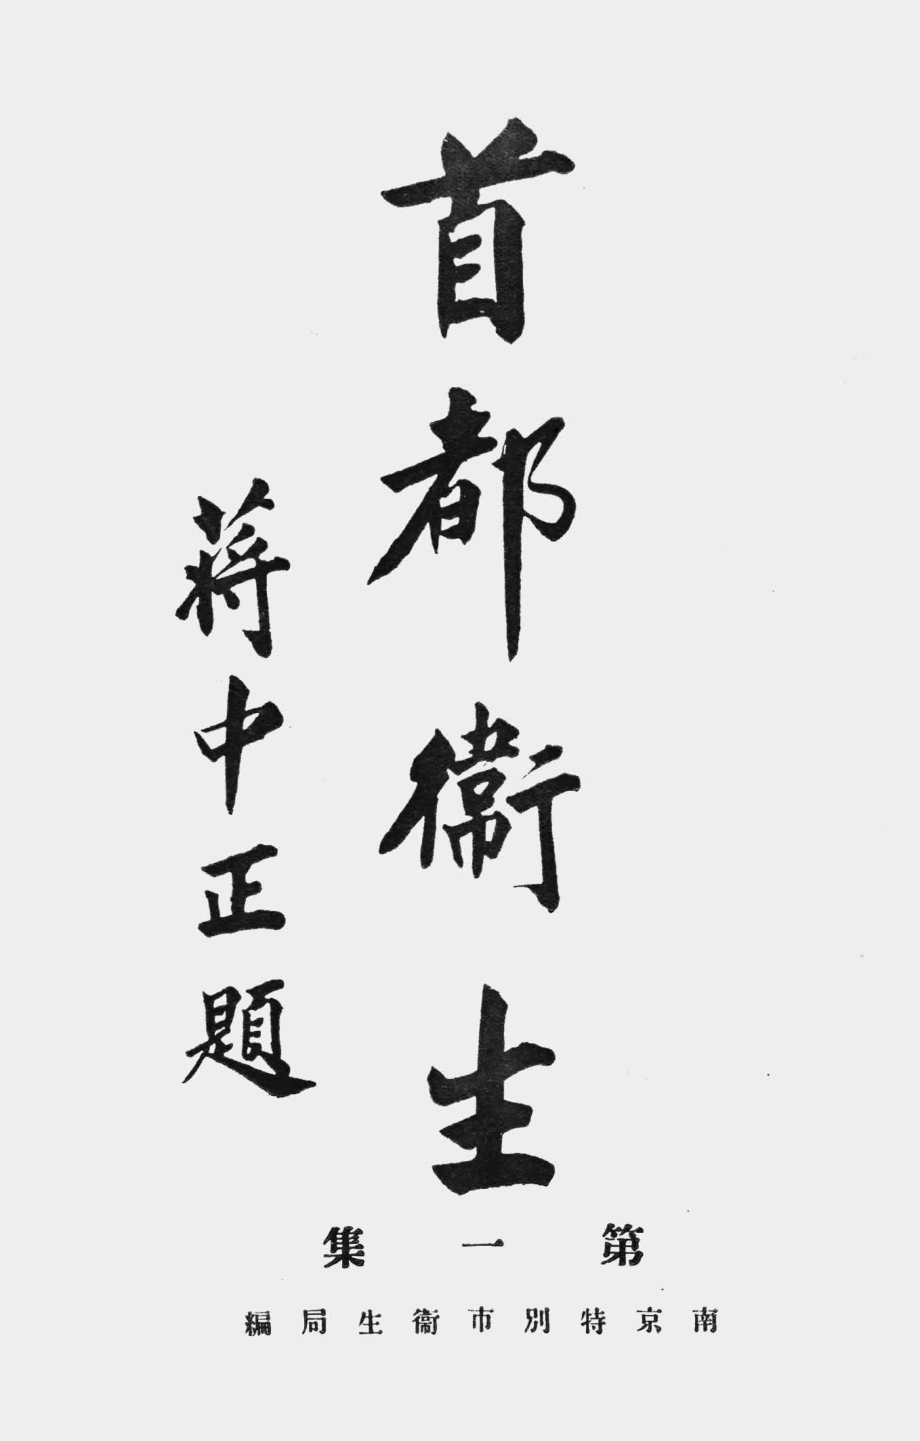 首都衞生
蔣中正題
第一集
南京特別市衞生局編